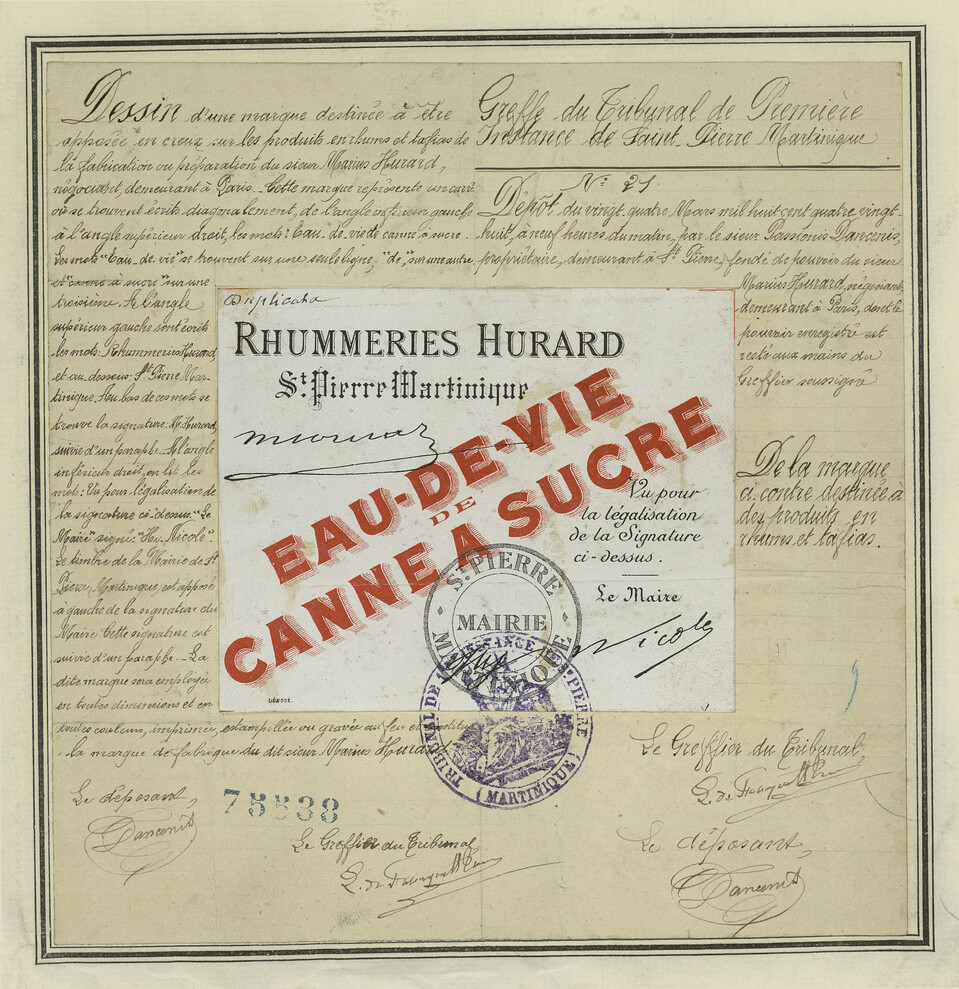 Dessin d'une marque destinée à être
apposée en creux sur les produits en rhums et tafias de
la fabrication ou préparation du sieur Marius Hurard,
négociant, demeurant à Paris. Cette marque représente un carré
où se trouvent écrits diagonalement, de l'angle inférieur gauche
à l'angle supérieur droit, les mots: Eau-de-vie de canne à sucre.
Les mots "Eau-de-vie" se trouvent sur une seule ligne, "de", sur une autre
et "canne à sucre" sur une
troisième. A l'angle
supérieur gauche sont écrits
les mots: Rhummeries Hurard,
et au-dessous: St. Pierre Mar-
tinique. Au bas de ces mots se
trouve la signature: M. Hurard,
suivie d'un paraphe. A l'angle
inférieur droit, on lit les
mots: Vu pour légalisation de
la signature ci-dessus. "Le
Maire" signé: "Nicole."
Le timbre de la Mairie de St
Pierre, Martinique, est apposé
à gauche de la signature du
Maire. Cette signature est
suivie d'un paraphe. La
dite marque sera employée
en toutes dimensions et en
toutes couleurs, imprimée, estampillée ou gravée au feu et
la marque de fabrique du dit sieur Marius Hurard
Le déposant,
Dancenis
75538
Le Greffier du Tribunal
Greffe du Tribunal de Première
Instance de Saint-Pierre Martinique
N° 21.
Dépôt du vingt-quatre Mars mil huit cent quatre vingt-
huit, à neuf heures du matin, par le sieur Dancenis,
propriétaire, demeurant à St. Pierre, fondé de pouvoir du sieur
Marius Hurard, négociant
demeurant à Paris, dont le
pouvoir enregistré est
resté aux mains du
Greffier soussigné
De la marque
ci contre destinée à
des produits en
rhums et tafias.
Le Greffier du Tribunal,
Le déposant,
Dancenis
Duplicata
RHUMMERIES HURARD
St. Pierre Martinique
EAU-DE-VIE
DE
CANNE A SUCRE
Vu pour
la légalisation
de la Signature
ci-dessus.
Le Maire
Nicole
DÉPOSÉ.
ST. PIERRE
MAIRIE
MARTINIQUE
TRIBUNAL DE 1ÈRE INSTANCE DE ST. PIERRE
(MARTINIQUE)